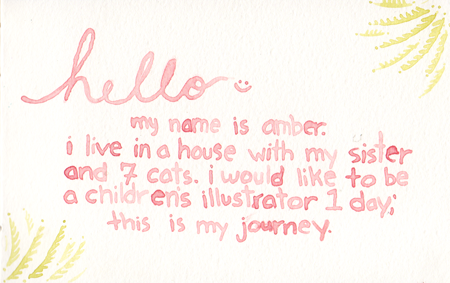 hello :)
my name is amber.
i live in a house with my sister
and 7 cats. i would like to be
a children's illustrator 1 day;
this is my journey.